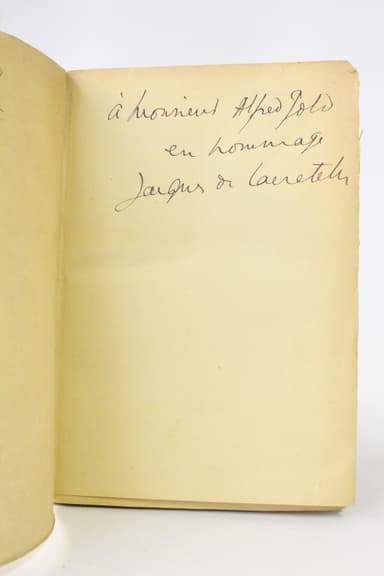 à Monsieur Alfred Gold
en hommage
Jacques de Lacretelle